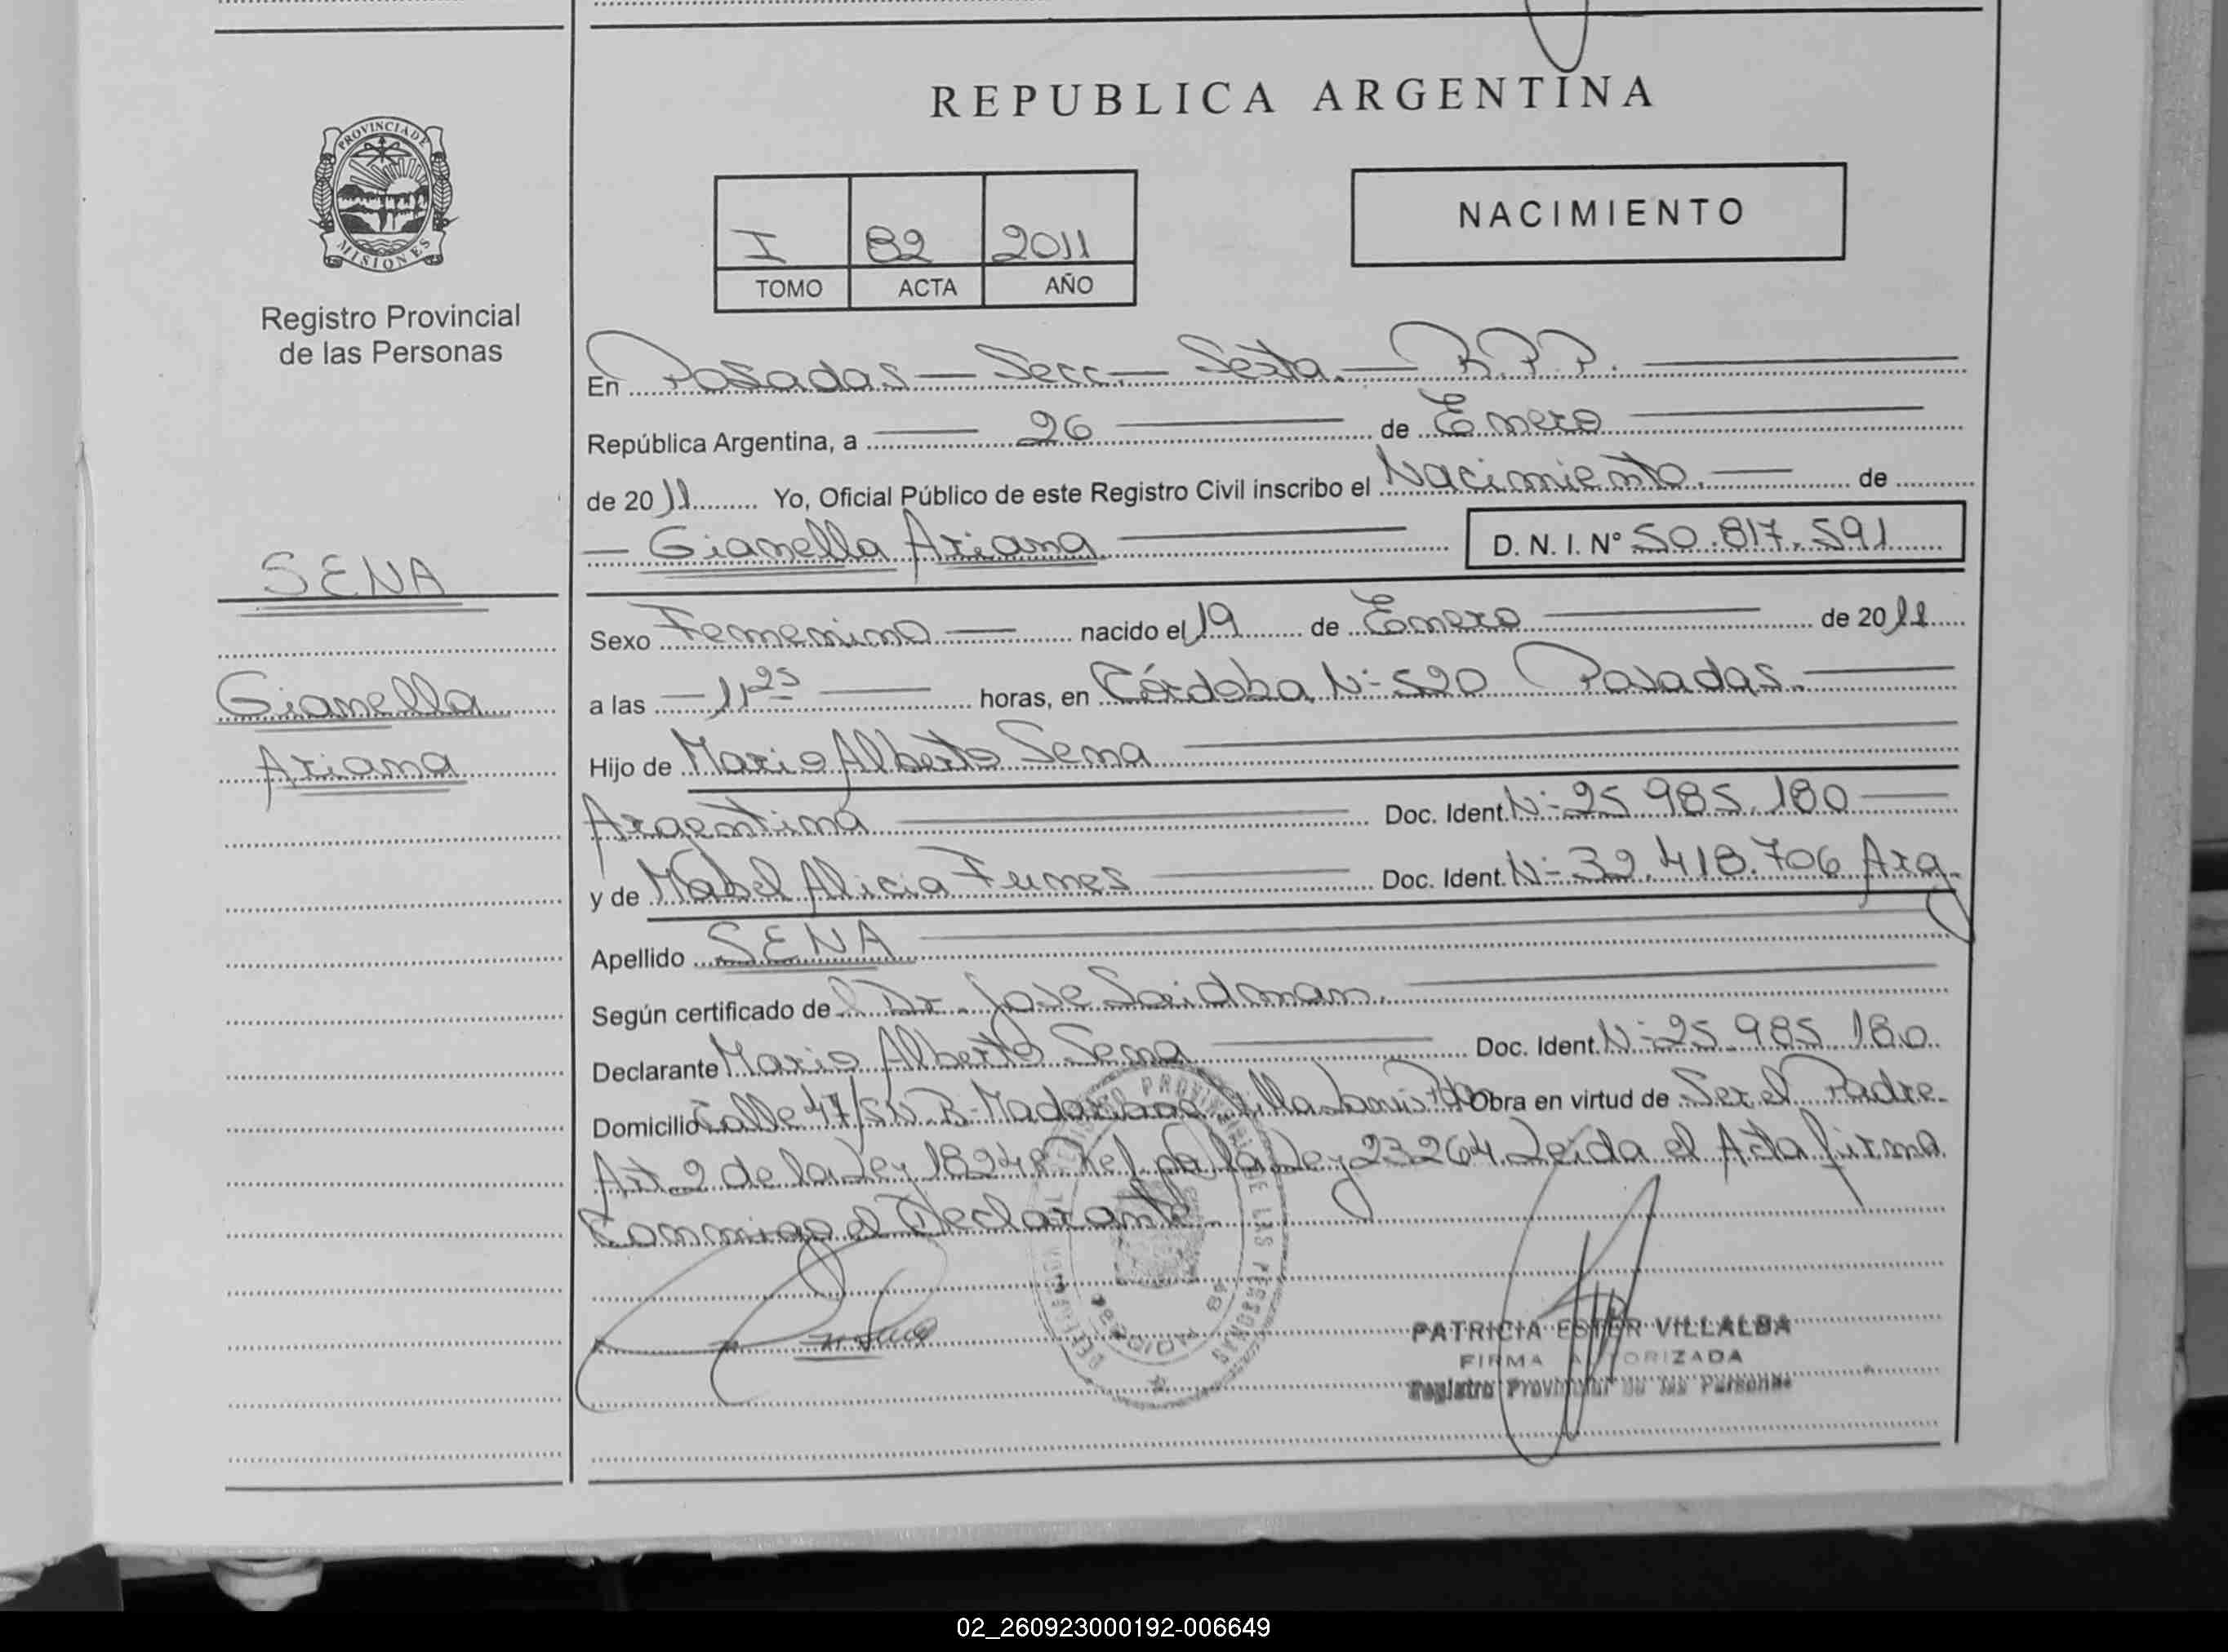 REPUBLICA ARGENTINA
PROVINCIA DE
MISIONES
Registro Provincial
de las Personas
NACIMIENTO
I 82 2011
TOMO ACTA AÑO
En Posadas – Secc. – Sexta. – R.P.P.
República Argentina, a 26 de Enero
de 2011 Yo, Oficial Público de este Registro Civil inscribo el Nacimiento. de
Gianella Ariana D. N. I. Nº 50.817.591
SENA
Gianella
Ariana
Sexo Femenino nacido el 19 de Enero de 2011
a las 11 25 horas, en Córdoba Nº 520 Posadas.
Hijo de Mario Alberto Sena
Argentina Doc. Ident. Nº 25.985.180
y de Mabel Alicia Funes Doc. Ident. Nº 32.418.706 Arg.
Apellido SENA
Según certificado de Dr. Jose Saidman.
Declarante Mario Alberto Sena Doc. Ident. Nº 25.985.180
Domicilio Calle 47/SN B. Madariaga Villa Obra en virtud de Ser el Padre.
Art 2 de la Ley 18248 Ref. por la Ley 23264 Leida el Acta firma
Conmigo el Declarante.
REGISTRO PROVINCIAL DE LAS PERSONAS
PATRICIA ESTER VILLALBA
FIRMA AUTORIZADA
Registro Provincial de las Personas
02_260923000192-006649